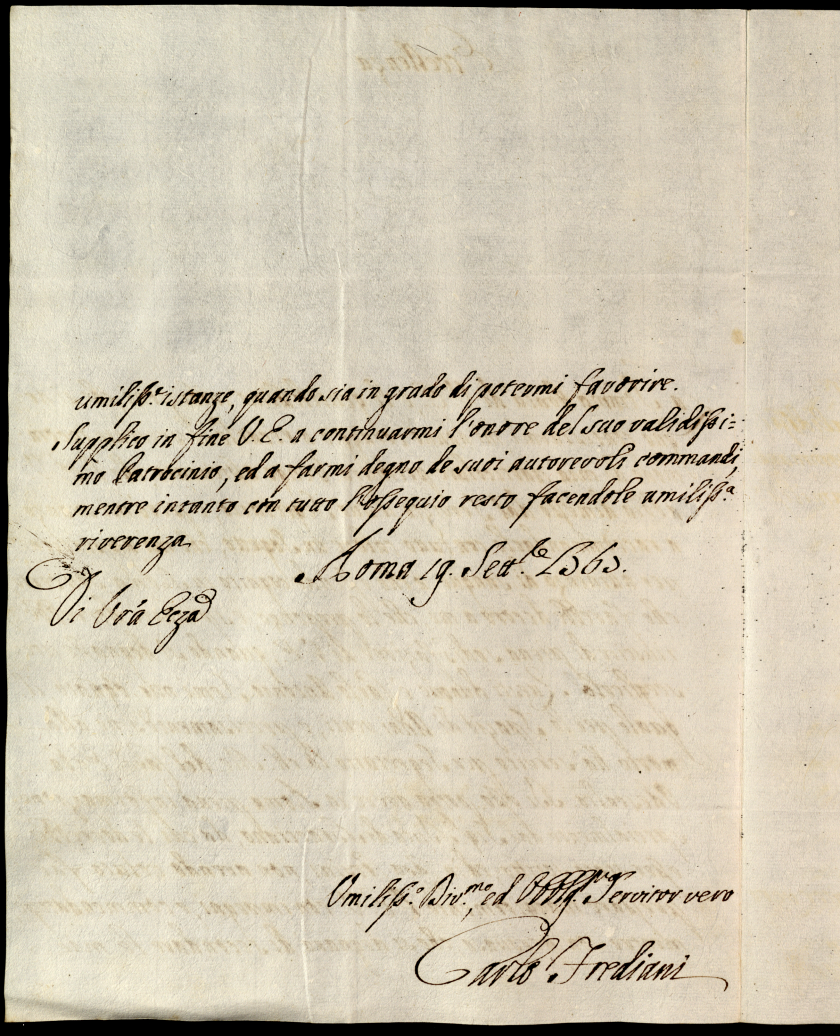 umiliss.e istanze, quando sia in grado di potermi favorire.
Supplico in fine V. E. a continuarmi l'onore del suo validissi=
mo Patrocinio, ed a farmi degno de suoi autorevoli commandi,
mentre intanto con tutto l'ossequio resto facendole umiliss.a
riverenza
Roma 19. Sett.bre 1763.
Di Vra Ecza
Umiliss.o Div.mo, ed Obblig.mo Servitor vero
Carlo Frediani